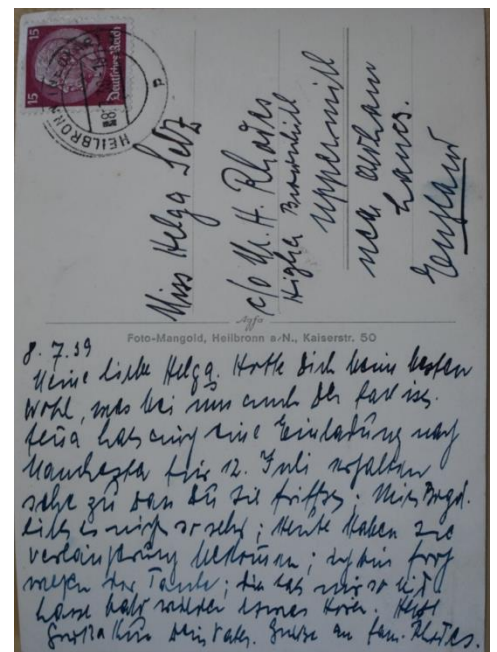 15 15
Deutsches Reich
HEILBRONN
Miss Helga Selz
c/o Mr. H. Rhodes
Higher Brownhill
Uppermill
near Oldham
Lancs.
England
Agfa
Foto-Mangold, Heilbronn a/N., Kaiserstr. 50
8. 7. 39
Meine liebe Helga. Hoffe Dich beim besten
Wohl, was bei uns auch der Fall ist.
hat auch eine Einladung nach
Manchester für 12. Juli erhalten
sehe zu dass Du sie triffst.
es mich so sehr; Heute haben sie
Verlängerung bekommen; ich bin froh
wegen der Tante; die tat mir so leid
Lasse bald wieder etwas hören. Herzl
Grüße Kuss Dein Vater. Grüße an Fam. Rhodes.